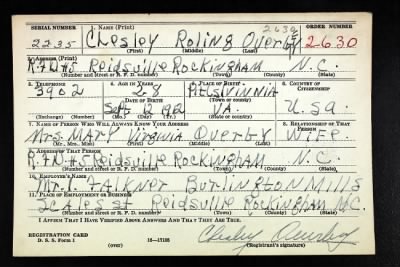 SERIAL NUMBER 1. NAME (Print) ORDER NUMBER
2630
2235 Chesley Roling Overby 2630
(First) (Middle) (Last)
2. ADDRESS (Print)
R.F.D #5 Reidsville Rockingham N.C.
(Number and street or R. F. D. number) (Town) (County) (State)
3. TELEPHONE 4. AGE IN YEARS 5. PLACE OF BIRTH 6. COUNTRY OF CITIZENSHIP
3902 28
DATE OF BIRTH (Town or county)
Sept 12 1912 VA. U.S.a.
(Exchange) (Number) (Mo.) (Day) (Yr.) (State or country)
7. NAME OF PERSON WHO WILL ALWAYS KNOW YOUR ADDRESS 8. RELATIONSHIP OF THAT PERSON
Mrs. Mary Virginia Overby Wife
(Mr., Mrs., Miss) (First) (Middle) (Last)
9. ADDRESS OF THAT PERSON
R.F.D #5 Reidsville Rockingham N.C.
(Number and street or R. F. D. number) (Town) (County) (State)
10. EMPLOYER'S NAME
Mr. Falkner Burlington Mills
11. PLACE OF EMPLOYMENT OR BUSINESS
Scales St Reidsville Rockingham N.C.
(Number and street or R. F. D. number) (Town) (County) (State)
I AFFIRM THAT I HAVE VERIFIED ABOVE ANSWERS AND THAT THEY ARE TRUE.
REGISTRATION CARD
D. S. S. Form 1 (over) 16—17105 Chesley Overby
(Registrant's signature)